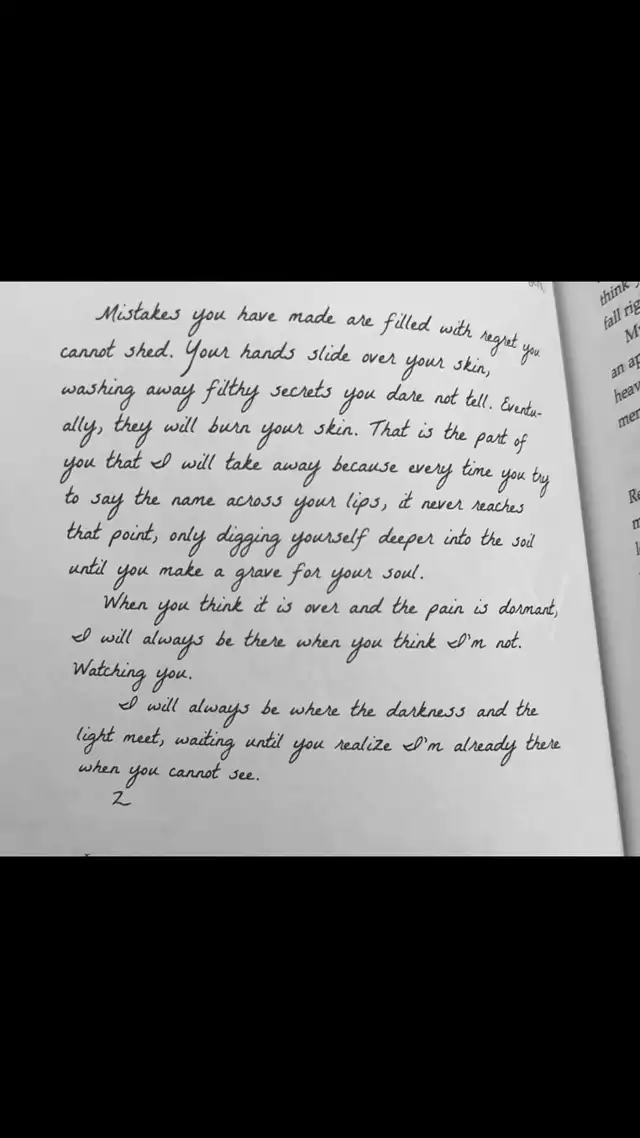 Mistakes you have made are filled with regret you
cannot shed. Your hands slide over your skin,
washing away filthy secrets you dare not tell. Eventu-
ally, they will burn your skin. That is the part of
you that I will take away because every time you try
to say the name across your lips, it never reaches
that point, only digging yourself deeper into the soil
until you make a grave for your soul.
When you think it is over and the pain is dormant,
I will always be there when you think I'm not.
Watching you.
I will always be where the darkness and the
light meet, waiting until you realize I'm already there
when you cannot see.
Z
think
fall rig
an ap
heav